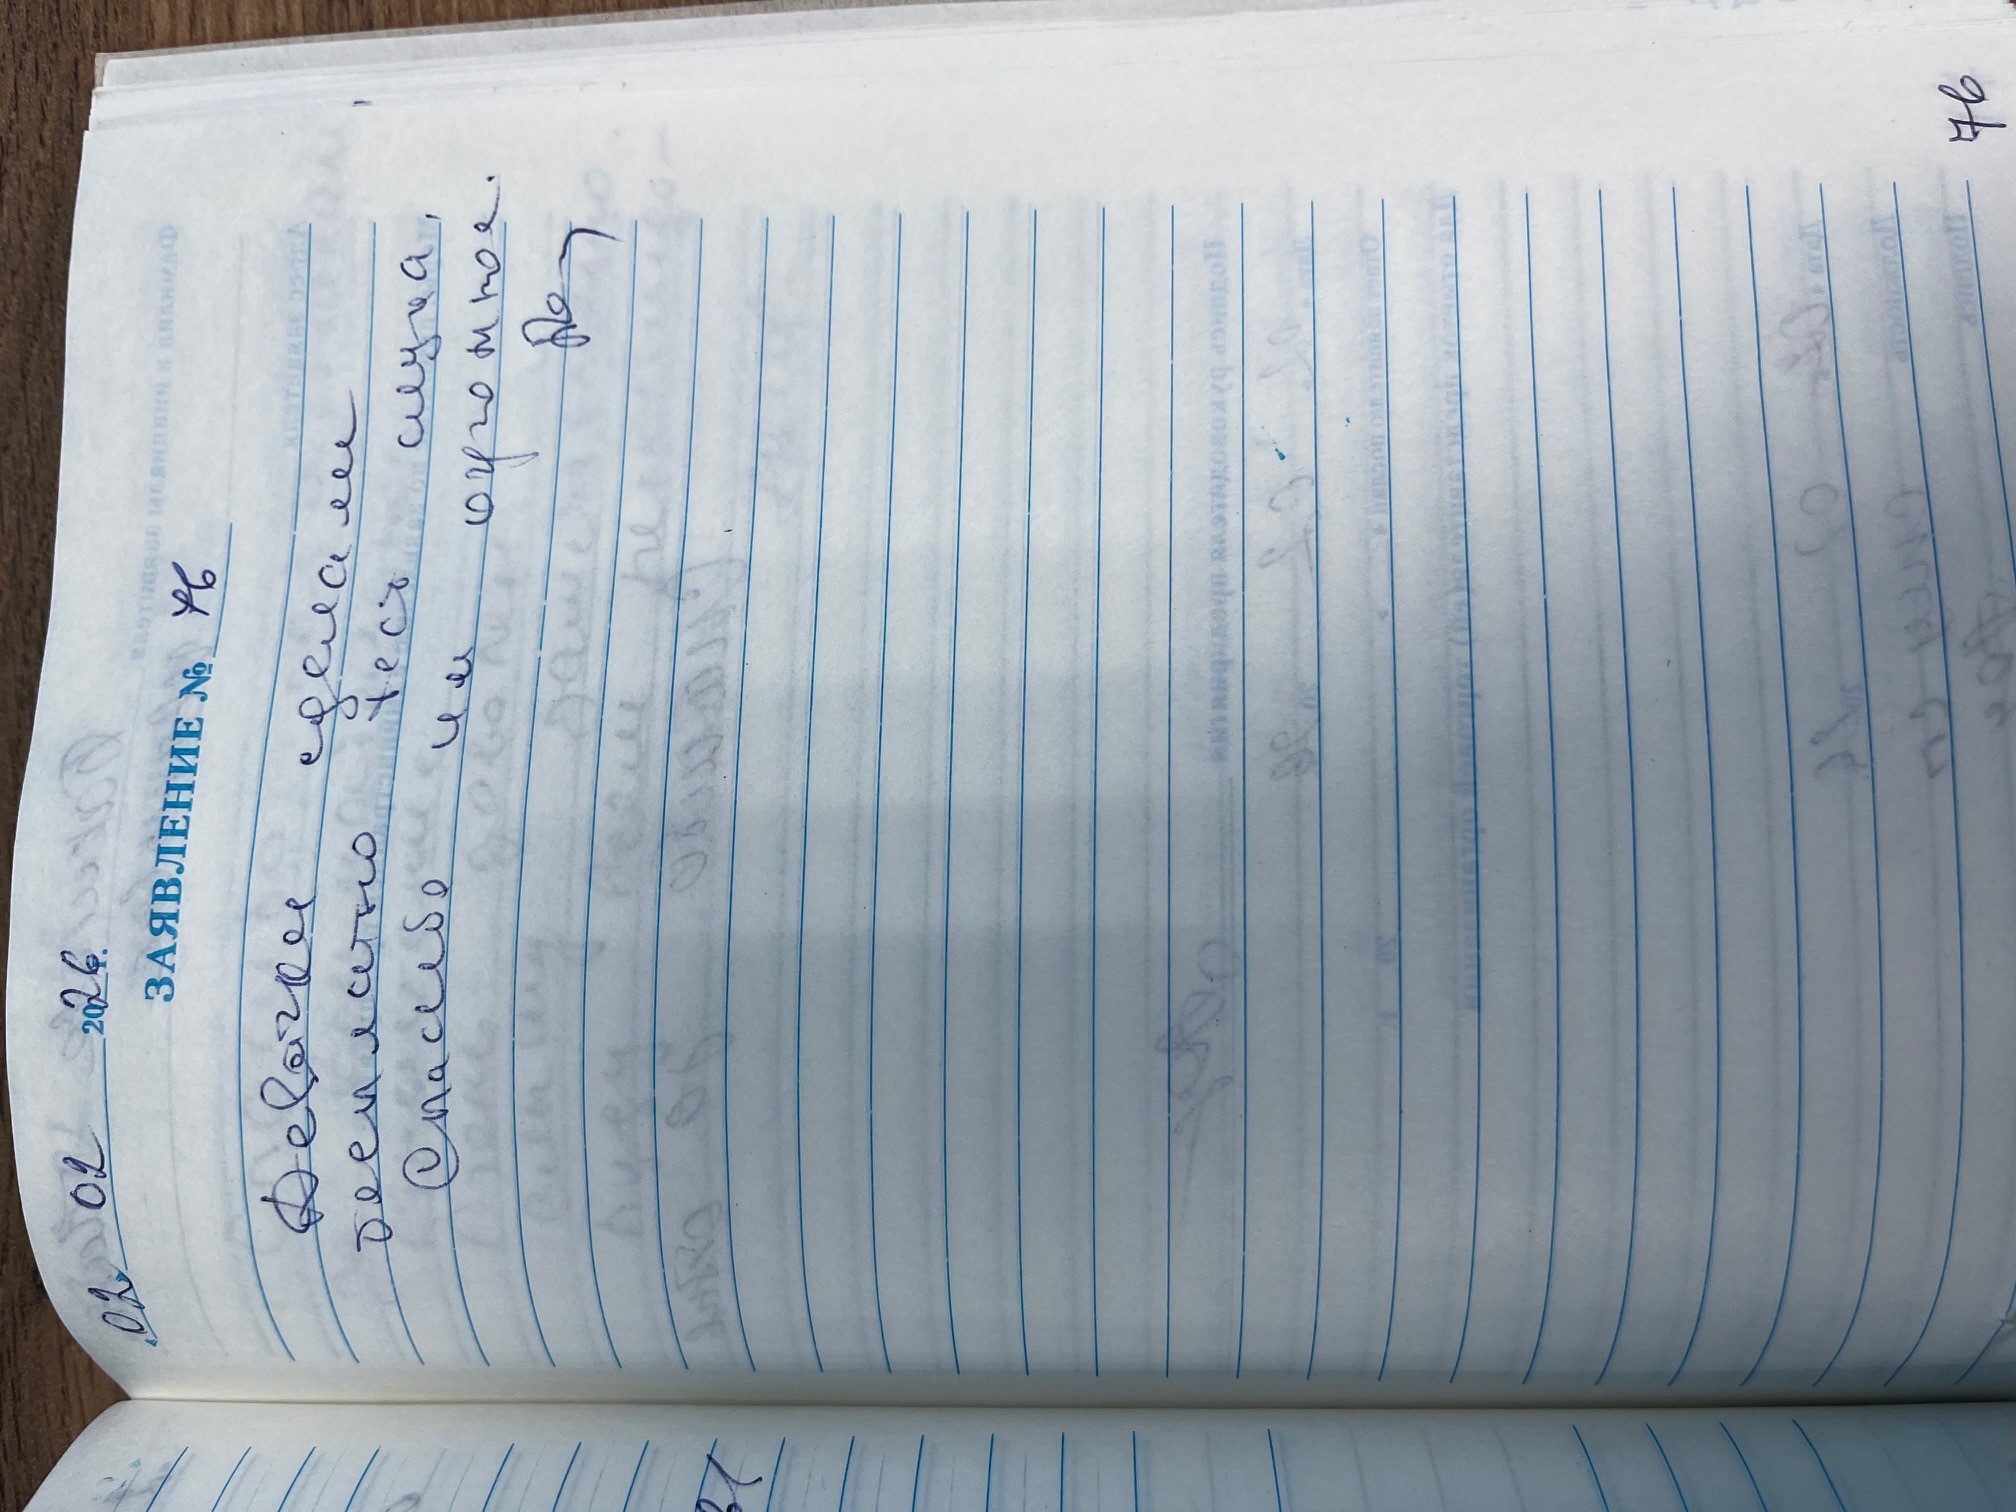 "02" 02 2026г.
ЗАЯВЛЕНИЕ № 76
Девочки сделали
бесплатно тест слуха,
Спасибо им огромное.
76